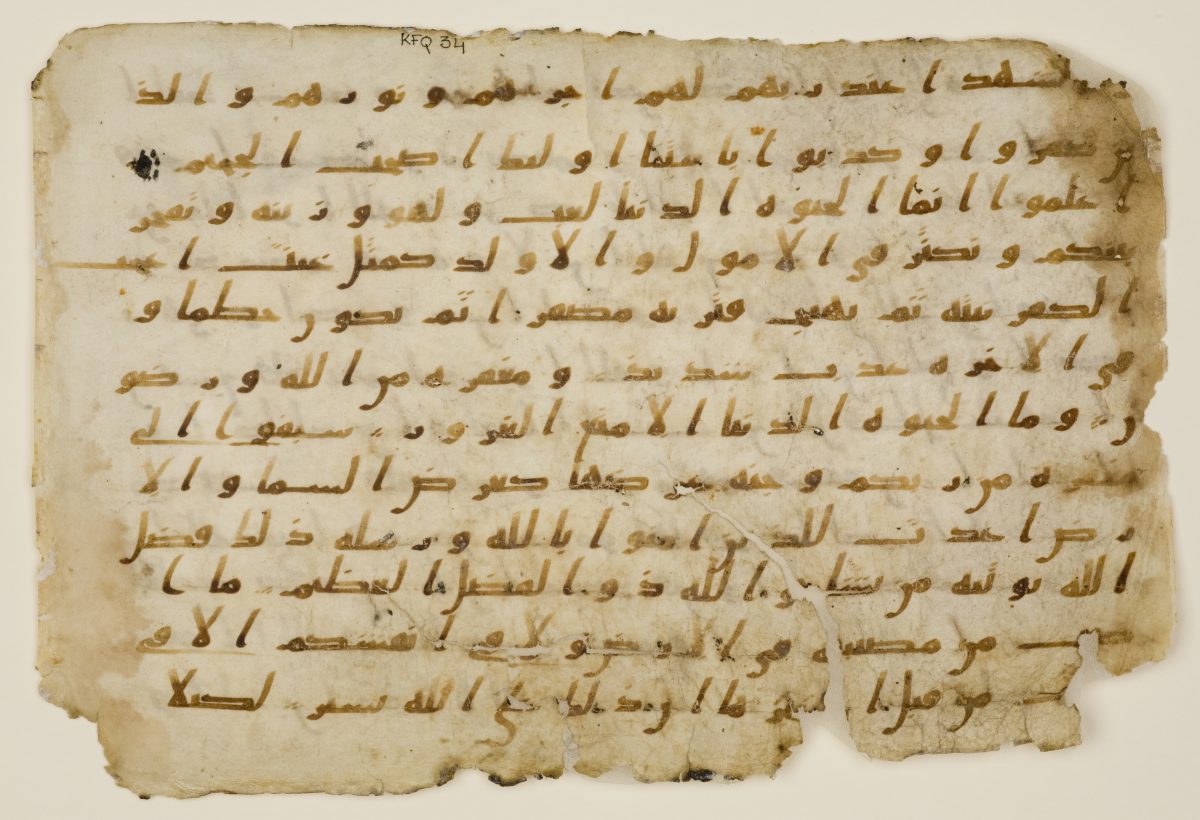 KFQ 34
الشهدا عند ربهم لهم اجرهم ونورهم والذ
ين كفروا وكذبوا بايتنا اوليك اصحب الجحيم
اعلموا انما الحيوة الدنيا لعب ولهو وزينة وتفخر
بينكم وتكثر في الامول والاولد كمثل غيث اعجب
الكفر نبته ثم يهيج فتريه مصفرا ثم يكون حطما و
في الاخرة عذب شديد ومغفرة من الله ورضو
ن وما الحيوة الدنيا الا متع الغرور سبقوا الى
مغفرة من ربكم وجنة عرضها كعرض السما والا
رض اعدت للذين امنوا بالله ورسله ذلك فضل
الله يوتيه من يشا والله ذو الفضل العظيم ما ا
صب من مصيبة في الارض ولا في انفسكم الا في
من قبل ان نبرها ان ذلك على الله يسير لكيلا